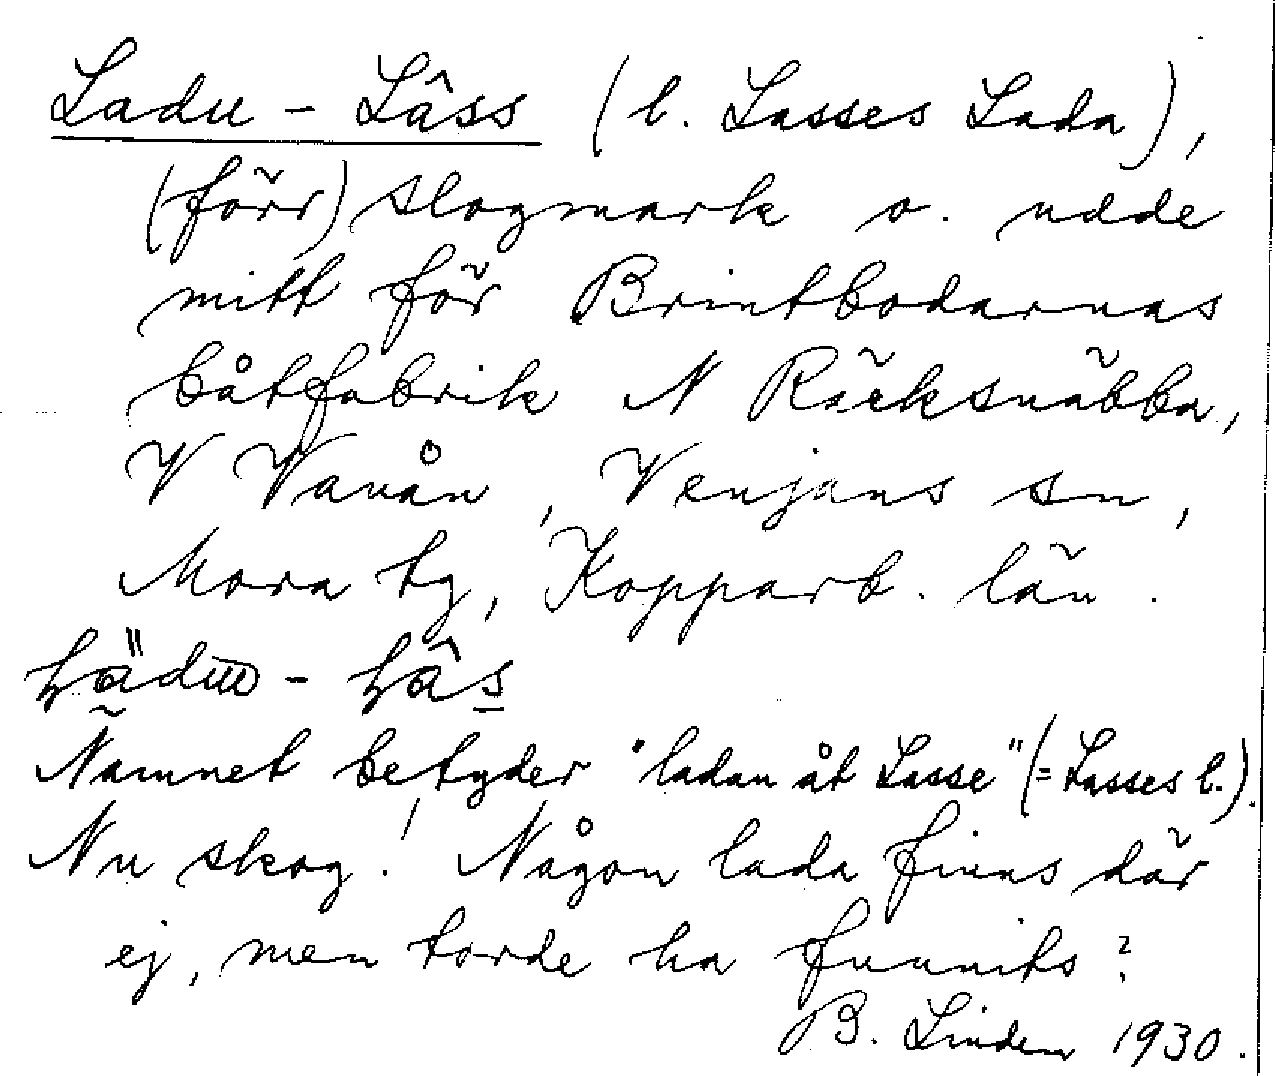 Ladu - Lâss (l. Lasses Lada),
(förr) slogmark o. udde
mitt för Brintbodarnas
båtfabrik N Räcksnäbba,
V Vanån, Venjans sn,
Mora tg, Kopparb. län.
Namnet betyder "ladan åt Lasse" (= Lasses l.).
Nu skog! Någon lada finns där
ej, men torde ha funnits?
B. Linden 1930.